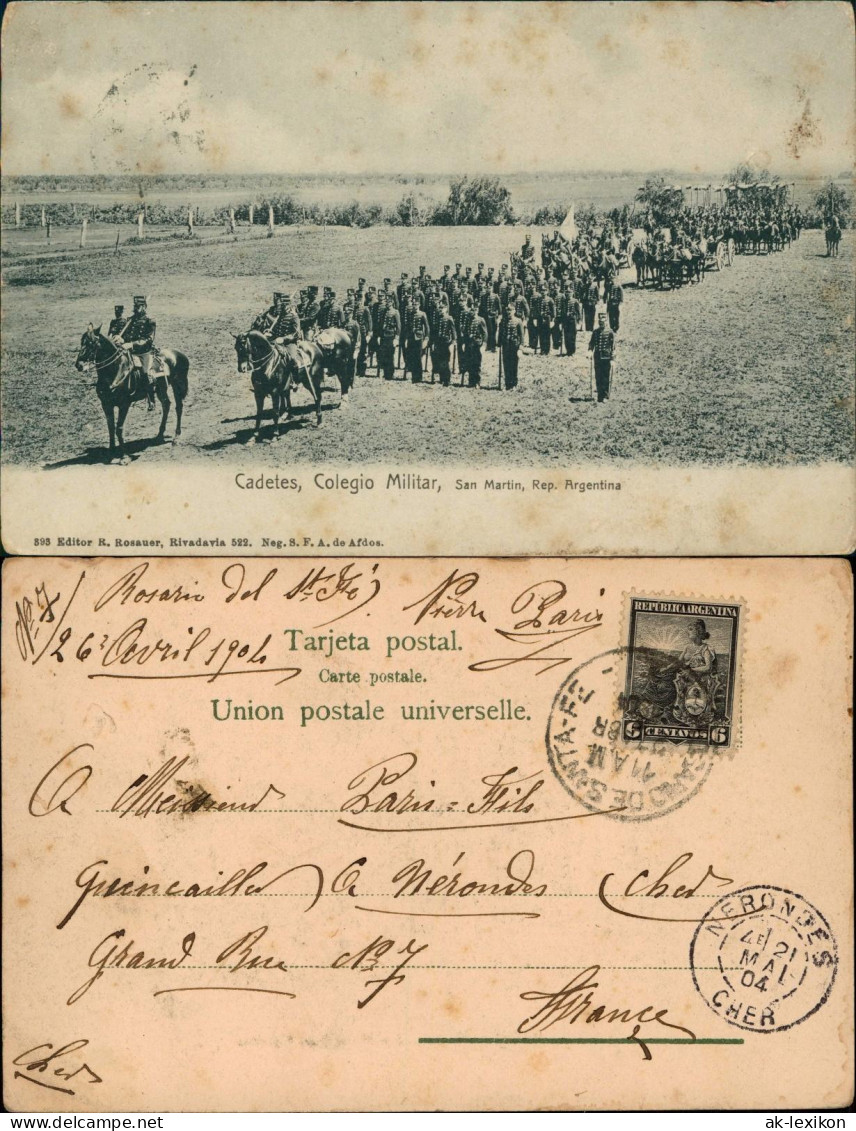 Cadetes, Colegio Militar, San Martin, Rep. Argentina
393 Editor R. Rosauer, Rivadavia 522. Neg. S. F. A. de Afdos.
No. 7
Rosario del St. Fé
Pierre Paris
26 Avril 1904
Tarjeta postal.
Carte postale.
Union postale universelle.
REPUBLICA ARGENTINA
6 CENTAVOS 6
ROSARIO DE SANTA-FE
11 A.M
A Messieurs Paris-Fils
Quincailler A Nérondes (Cher)
Grand Rue No. 7
France
Cher
NERONDES
4E 21
MAI
04
CHER
ak-lexikon